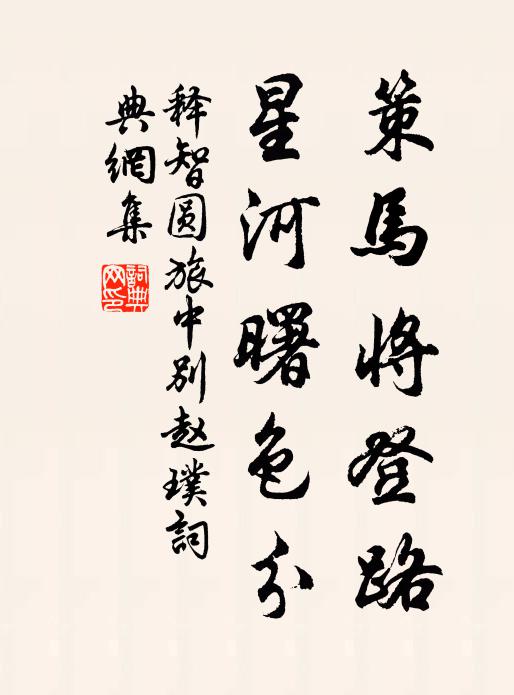 策馬將登路
星河曙色分
释智圆旅中别赵璞詞
典網集
詞典网印